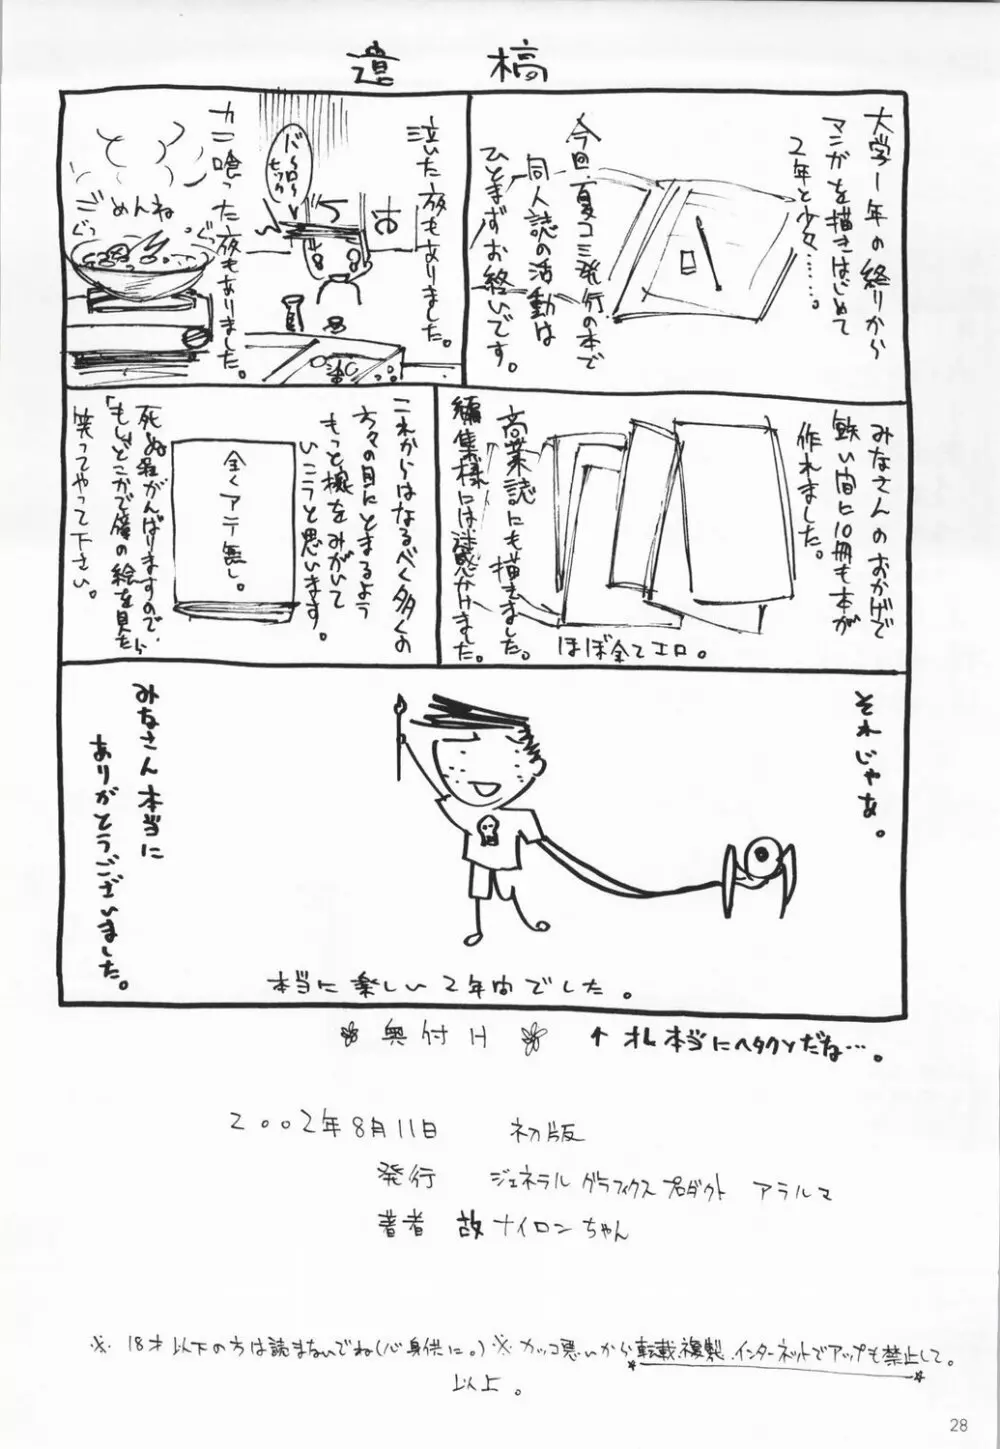 遺稿
大学1年の終りから
マンガを描きはじめて
2年と少々……。
今回、夏コミ発行の本で
同人誌の活動は
ひとまずお終いです。
泣いた夜もありました。
カニ喰った夜もありました。
ごめんね
ぐっ
ぐ
みなさんのおかげで
短い間に10冊も本が
作れました。
商業誌にも描きました。
編集様には迷惑かけました。
ほぼ全てエロ。
これからはなるべく多くの
方々の目にとまるよう
もっと様をみがいて
いこうと思います。
全くアテ無し。
死ぬ程がんばりますので、
「もしどこかで僕の絵を見たら
笑ってやって下さい。
それじゃあ。
みなさん本当に
ありがとうございました。
本当に楽しい2年間でした。
奥付け
↑オレ本当にヘタクソだね…。
2002年8月11日 初版
発行 ジェネラルグラフィクスプロダクト アラルマ
著者 故ナイロンちゃん
※18才以下の方は読まないでね(心身供に。)※カッコ悪いから転載、複製、インターネットでアップも禁止して。
以上。
28